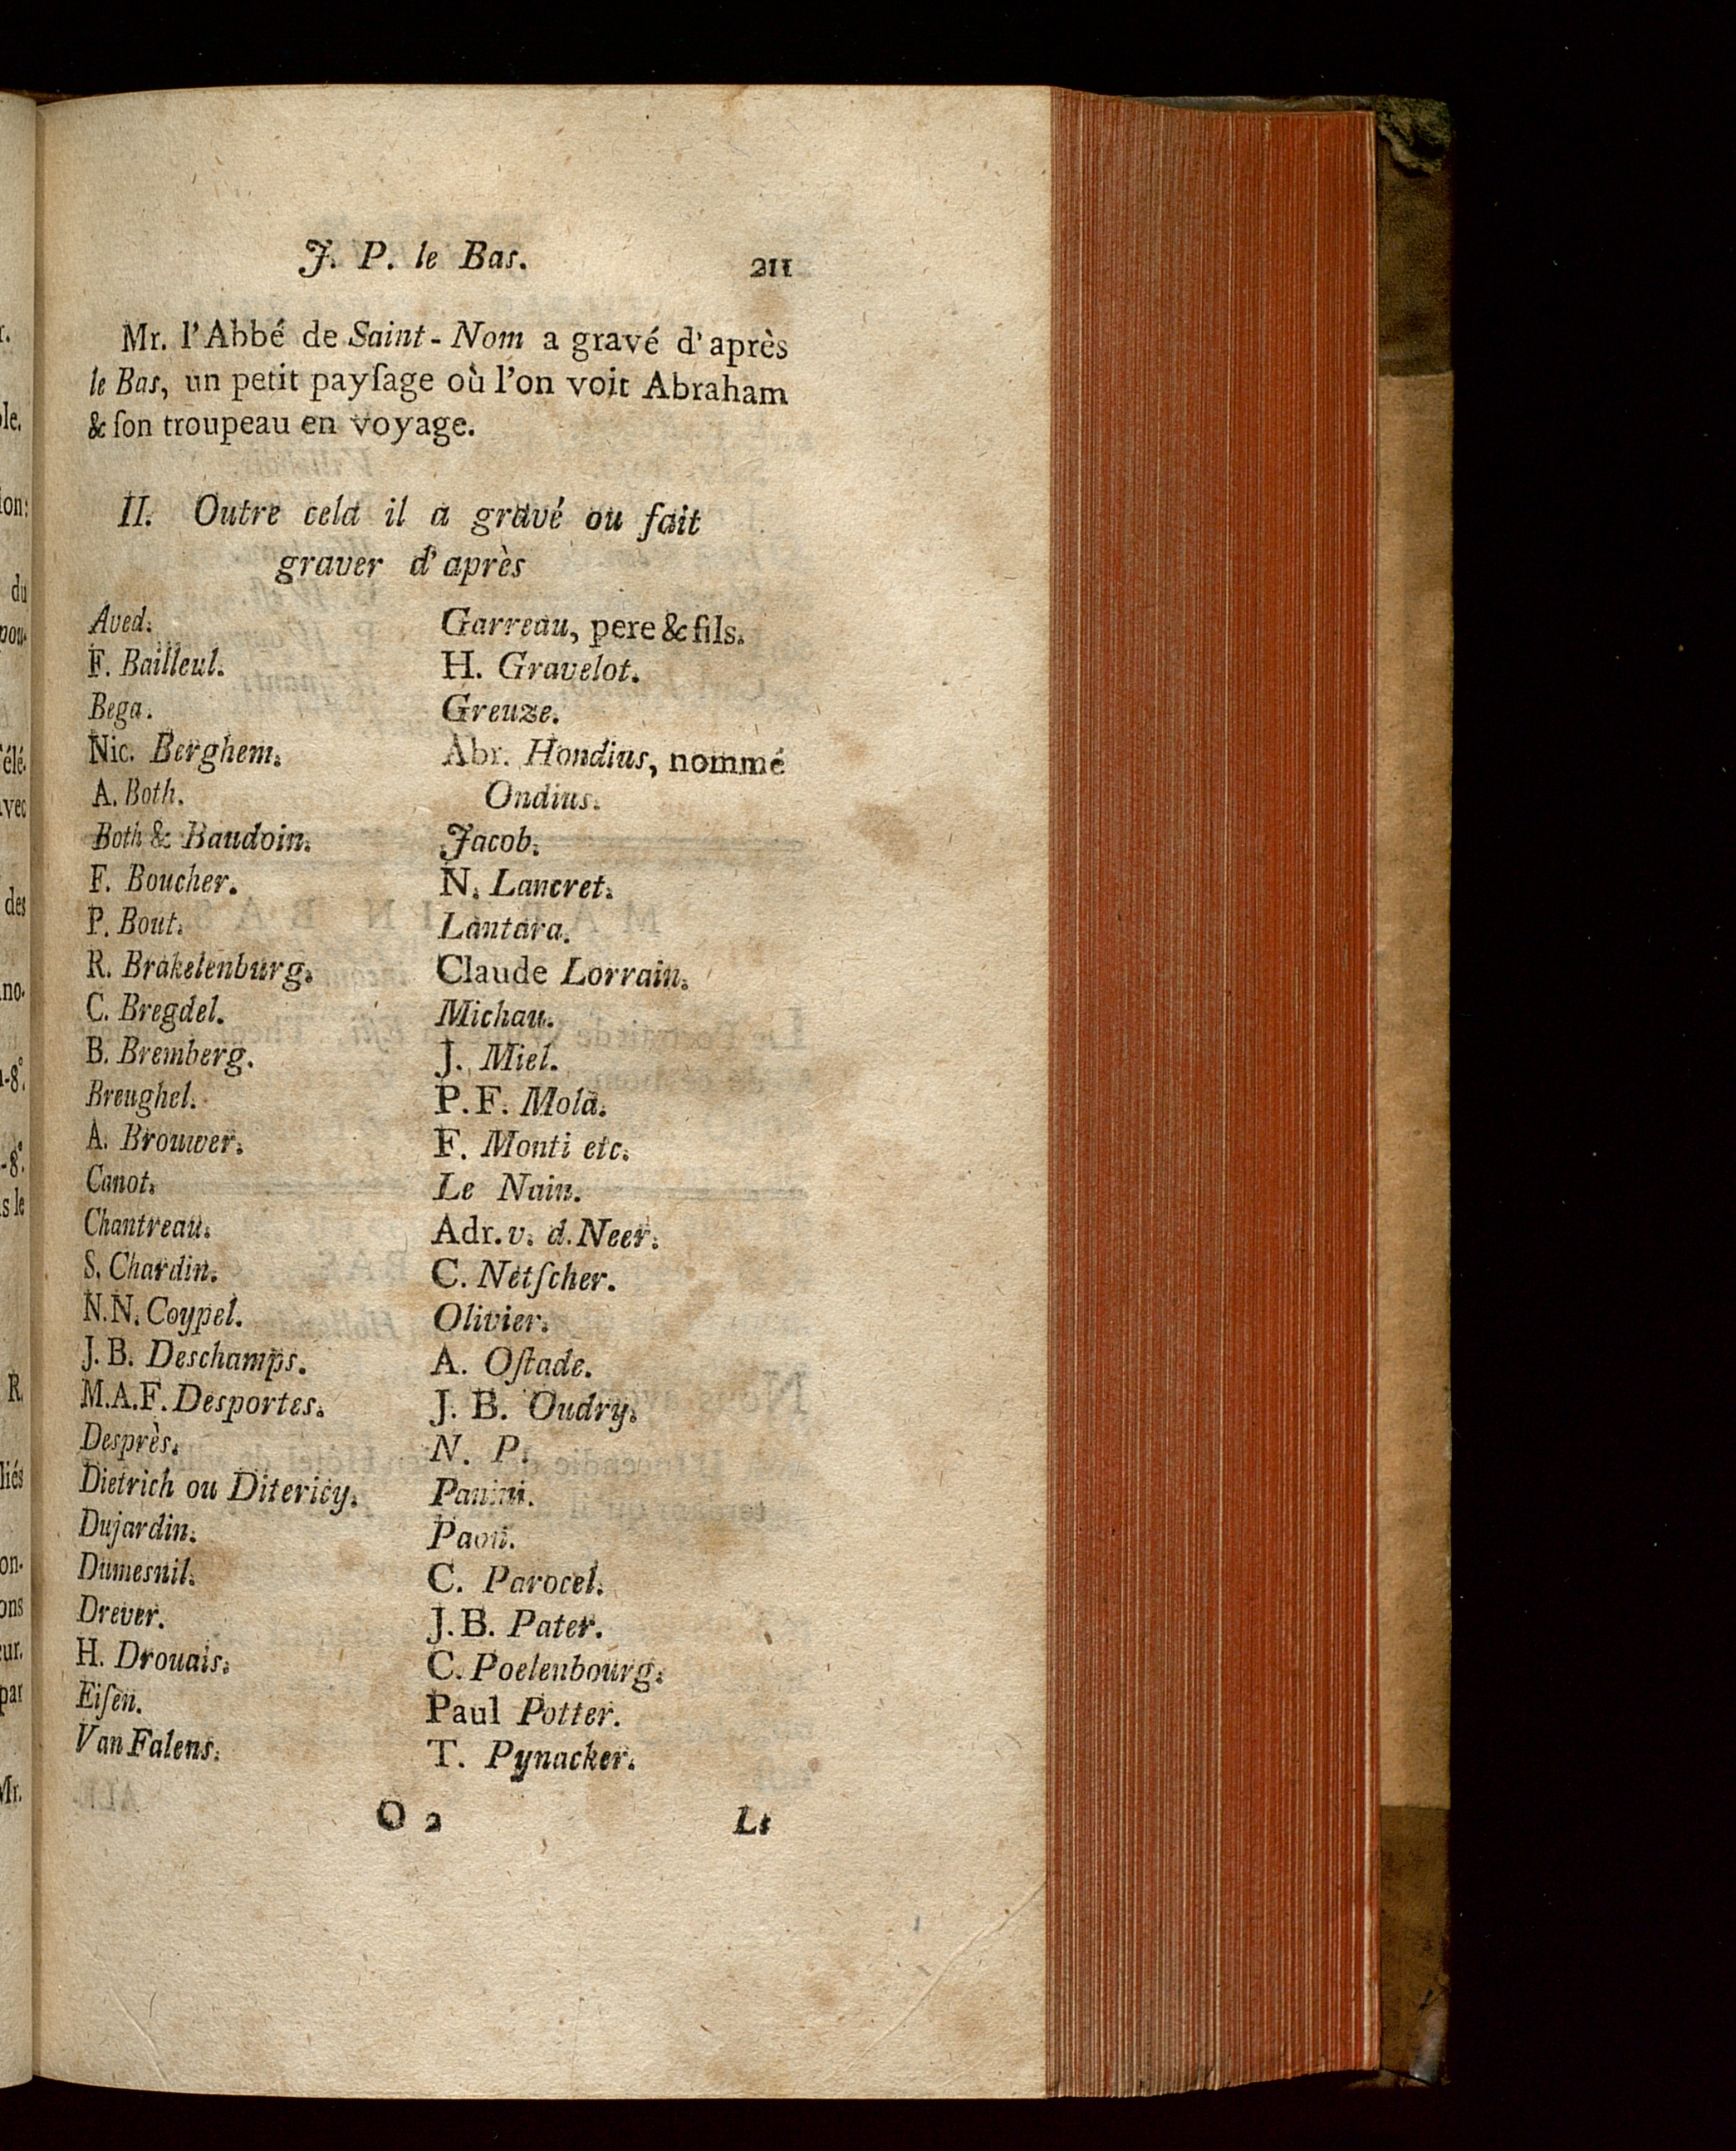 J. P. le Bas.
211
Mr. l'Abbé de Saint-Nom a gravé d'après
le Bas, un petit payſage où l'on voit Abraham
& ſon troupeau en voyage.
II. Outre cela il a gravé ou fait
graver d'après
Aved.
F. Bailleul.
Bega.
Nic. Berghem.
A. Both.
Both & Baudoin.
F. Boucher.
P. Bout.
R. Brakelenburg.
C. Bregdel.
B. Bremberg.
Breughel.
A. Brouwer.
Canot.
Chantreau.
S. Chardin.
N.N. Coypel.
J. B. Deschamps.
M.A.F. Desportes.
Desprès.
Dietrich ou Ditericy.
Dujardin.
Dumesnil.
Drever.
H. Drouais.
Eiſen.
Van Falens.
Garreau, pere & fils.
H. Gravelot.
Greuze.
Abr. Hondius, nommé
Ondius.
Jacob.
N. Lancret.
Lantara.
Claude Lorrain.
Michau.
J. Miel.
P. F. Mola.
F. Monti etc.
Le Nain.
Adr. v. d. Neer.
C. Netſcher.
Olivier.
A. Oſtade.
J. B. Oudry.
N. P.
Panini.
Paon.
C. Parocel.
J. B. Pater.
C. Poelenbourg.
Paul Potter.
T. Pynacker.
O 2